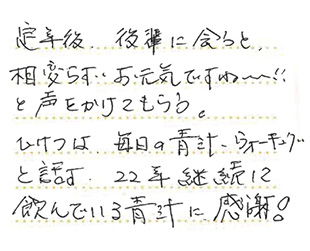 定年後、後輩に会うと、
相変らずお元気ですね〜!!
と声をかけてもらう。
ひけつは 毎日の青汁・ウォーキング
と話す。22年継続に
飲んでいる青汁に感謝!